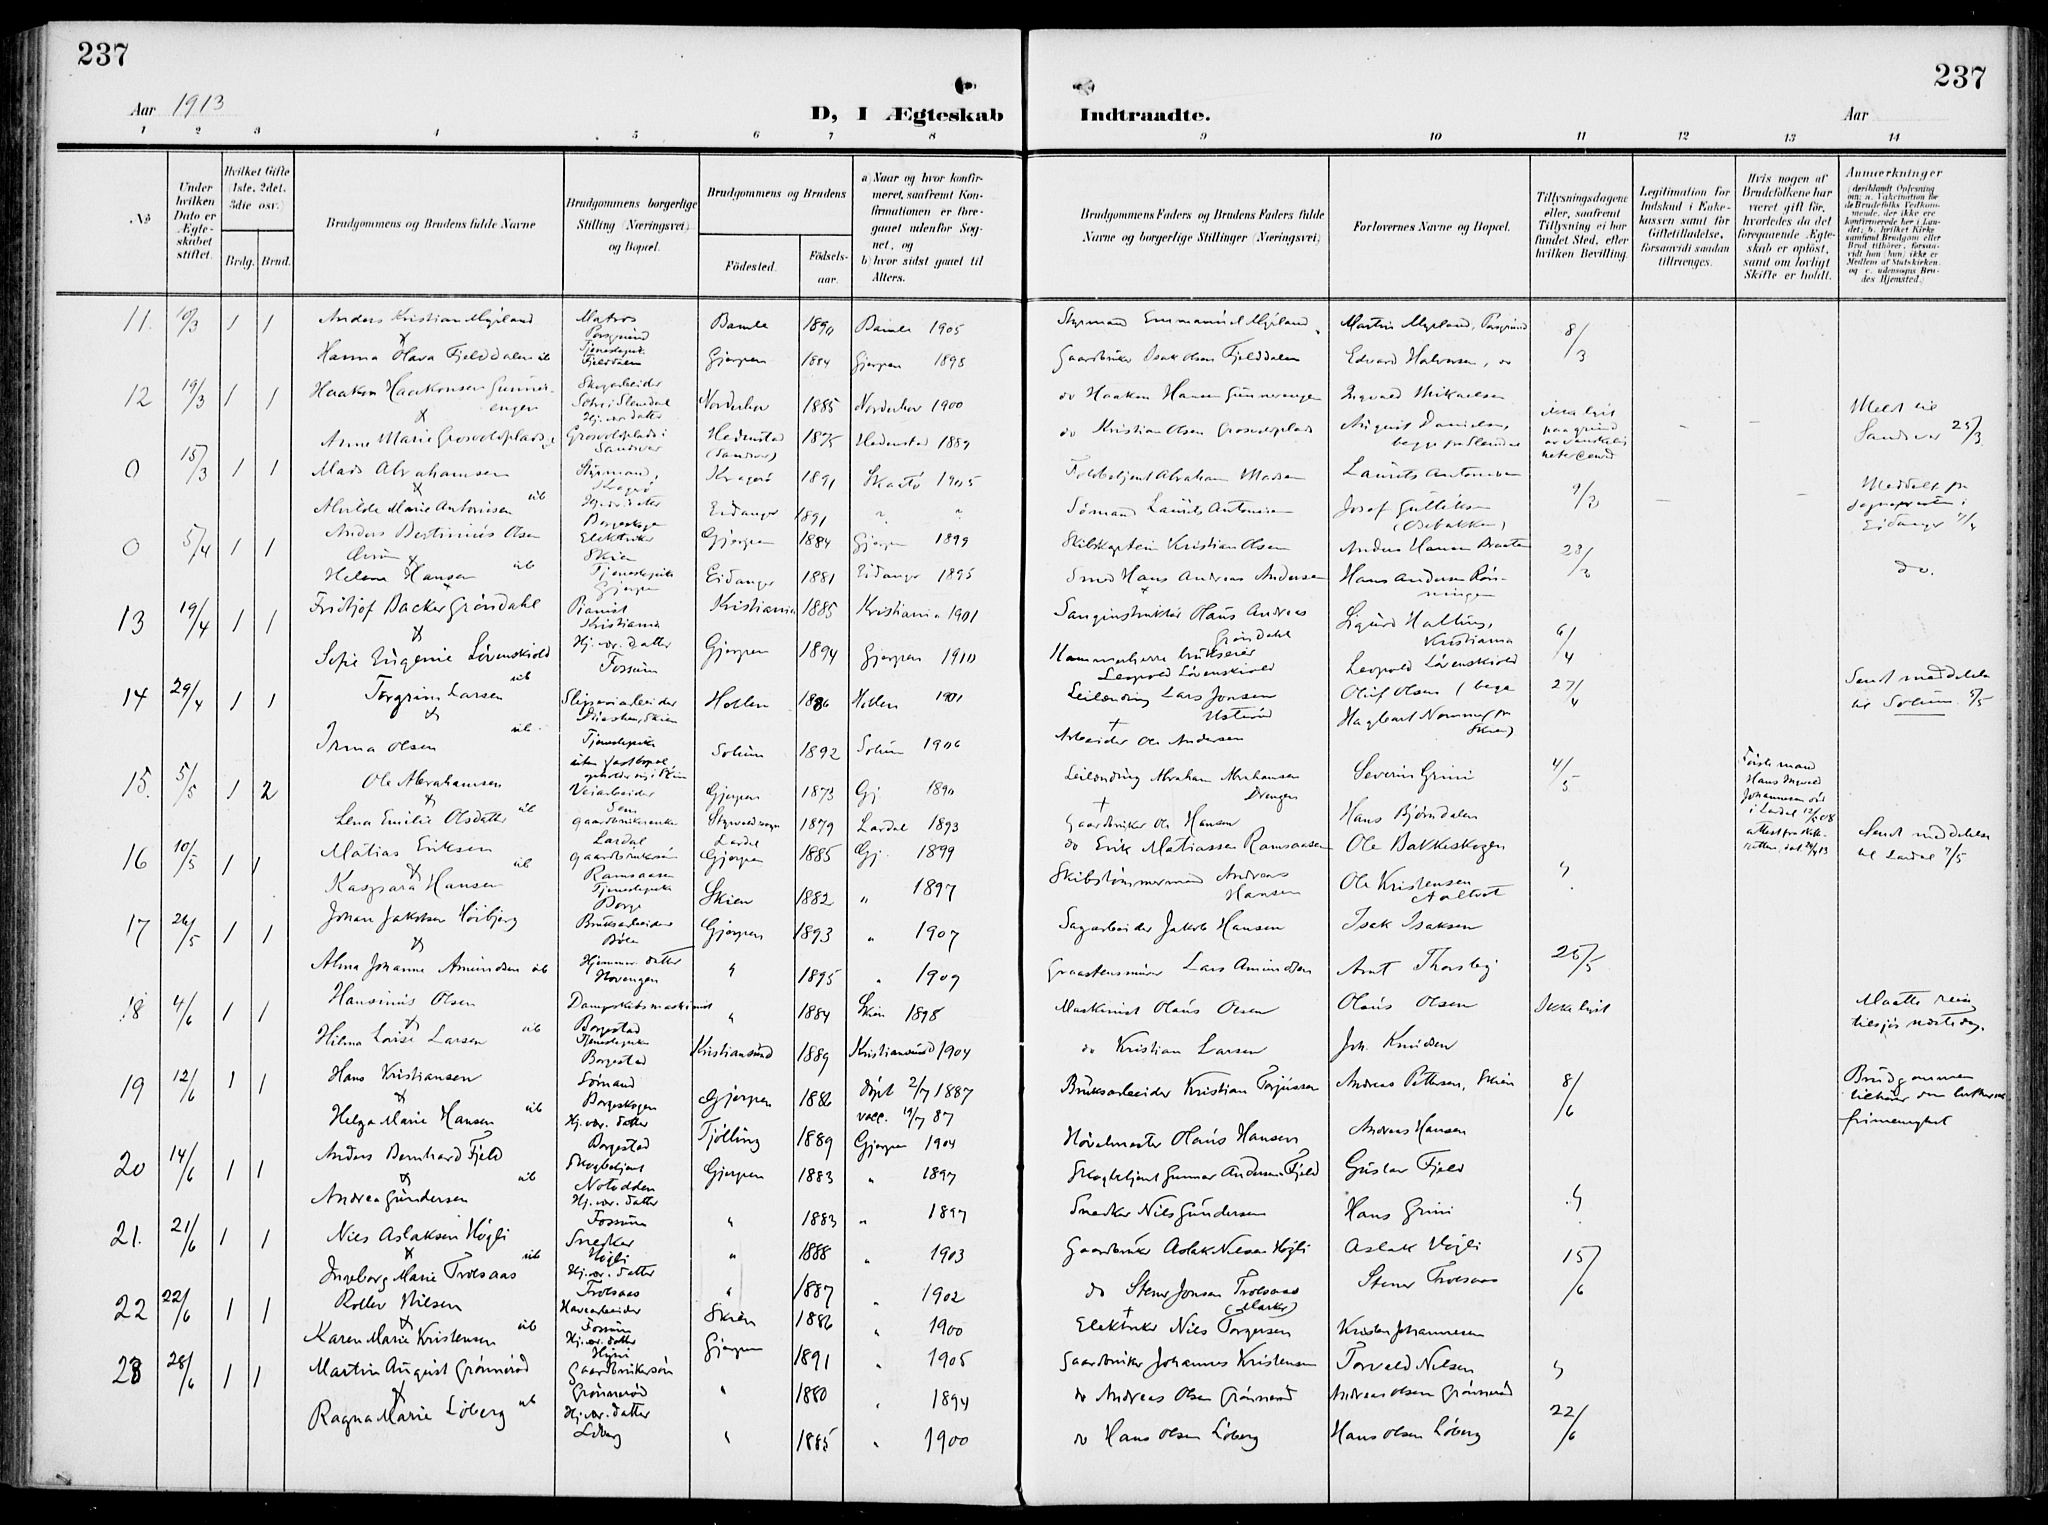 237
237
Aar 1913
D, I Ægteskab Indtraadte.
Aar
1 2 3 4 5 6 7 8 9 10 11 12 13 14
No
Under hvilken Dato er Ægteskabet stiftet.
Hvilket Gifte (1ste, 2det, 3die osv.)
Brdg. Brud.
Brudgommens og Brudens fulde Navne
Brudgommens borgerlige Stilling (Næringsvei) og Bopæl.
Brudgommens og Brudens
Födested.
Födselsaar.
a) Naar og hvor konfirmeret, saafremt Konfirmationen er foregaaet udenfor Sognet, og
b) hvor sidst gaaet til Alters.
Brudgommens Faders og Brudens Faders fulde Navne og borgerlige Stillinger (Næringsvei)
Forlovernes Navne og Bopæl.
Tillysningsdagene eller, saafremt Tillysning ei har fundet Sted, efter hvilken Bevilling.
Legitimation for Indskud i Enkekassen samt for Giftetilladelse, forsaavidt saadan tiltrænges.
Hvis nogen af Brudefolkene har været gift för, hvorledes da det foregaaende Ægteskab er oplöst, samt om lovligt Skifte er holdt.
Anmærkninger (deriblandt Oplysning om: a. Vakcination for de Brudefolks Vedkommende, der ikke ere konfirmerede her i Landet; b. hvilket Kirkesamfund Brudgom eller Brud tilhörer, forsaavidt han (hun) ikke er Medlem af Statskirken. og c. udensogns Brudes Hjemsted.)
11. 10/3 1 1 Anders Kristian Myrland Matros Porsgrund Bamle 1890 Bamle 1905 Styrmand Emmanuel Myrland Martin Myrland, Porsgrund 8/3
Hanna Olava Fjelddalen ub Tjenestepike Fjelddalen Gjerpen 1884 Gjerpen 1898 Gaardbruker Isak Olsen Fjelddalen Edvard Halvorsen, do
12 19/3 1 1 Haakon Haakonsen Gunnerengen Skogarbeider Norderhov 1885 Norderhov 1900 do Haakon Hansen Gunnerengen Ingvald Mikaelsen
Anne Marie Grosvoldplads Hj.vær. datter Grosvoldplads i Sandsvær Hedenstad (Sandsvær) 1875 Hedenstad 1889 do Kristian Olsen Grosvoldplads August Danielsen Meldt til Sandsvær 25/3
0 15/3 1 1 Mads Abrahamsen Styrmand, Kragerö Kragerö 1891 Skaatö 1905 Abraham Madsen Laurits Antonisen 9/3
Alvilde Marie Antonisen ub Hj.vær. datter Borgeskogen Eidanger 1891 " " Sömand Laurits Antonisen Josef Gulliksen (Osebakken) Meddelt fra sognepresten i Eidanger 4/4
0 5/4 1 1 Anders Bertinius Olsen Elektriker Skien Gjerpen 1884 Gjerpen 1899 Skibskaptein Kristian Olsen Anders Hansen Braaten 23/3
Helene Hansen ub Tjenestepike Gjerpen Eidanger 1881 Eidanger 1895 Smed Hans Andreas Andersen Hans Andersen Rönningen do.
13 19/4 1 1 Fridtjof Backer Gröndahl Pianist Kristiania Kristiania 1885 Kristiania 1901 Sanginstruktör Olaus Andreas Gröndahl Sigurd Halling, Kristiania 6/4
Sofie Eugenie Lövenskiold ub Hj.vær. datter Fossum Gjerpen 1894 Gjerpen 1910 Kammerherre brukseier Leopold Lövenskiold Leopold Lövenskiold
14 29/4 1 1 Torgrim Larsen Sliperiarbeider Skien Hollen 1886 Hollen 1901 Leilending Lars Jonsen Oluf Olsen (begge 27/4 Sendt meddelelse til Solum 5/5
Irma Olsen ub. Tjenestepike uten fast bopel, opholder sig i Skien Solum 1892 Solum 1906 Arbeider Ole Andersen Hagbart Nommen fra Skien)
15. 5/5 1 2 Ole Abrahamsen Veiarbeider Gjerpen 1873 Gj 1890 Leilending Abraham Abrahamsen Severin Grini 4/5 Förste mand Hans Ingvald Johannesen död i Lardal 12/2 08
Lena Emilie Olsdatter ub gaardbrukerenke Lardal 1879 Lardal 1893 Gaardbruker Ole Hansen Hans Björndalen Sendt meddelelse til Lardal 7/5
16 10/5 1 1 Matias Eriksen gaardbrukersön Ramsaasen Gjerpen 1885 Gj. 1899 do Erik Matiassen Ramsaasen Ole Bakkeskogen
Kaspara Hansen ub Tjenestepike Borge Skien 1882 " 1897 Skibstömmermand Andreas Hansen Ole Kristensen "
17 26/5 1 1 Johan Jakobsen Höibjerg Bruksarbeider Böle Gjerpen 1893 " 1907 Sagarbeider Jakob Hansen Isak Isaksen
Alma Johanne Amundsen ub Hjemmev. datter Hovengen " 1895 " 1909 Graastensmurer Lars Amundsen Arnt Thorsby 25/5
18 4/6 1 1 Hansinius Olsen Dampskibsmaskinist Borgestad " 1884 Skien 1898 Maskinist Olaus Olsen Olaus Olsen Ikke lyst Maatte reise tilsjös næste dag.
Hilma Lovise Larsen ub Tjenestepike Borgestad Kristiansund 1889 Kristiansund 1904 do Kristian Larsen Joh. Knudsen
19 12/6 1 1 Hans Kristiansen Sömand Borgeskogen Gjerpen 1886 Döpt 2/7 1887 vacc. 19/7 87 Bruksarbeider Kristian Torjussen Andreas Pettersen, Skien 8/6 Brudgommen tilhörer den luthersk frimenighet
Helga Marie Hansen ub Hj.vær. datter Borgestad Tjölling 1889 Gjerpen 1904 Hövelmester Olaus Hansen Andreas Hansen
20 14/6 1 1 Anders Bernhard Fjeld Skogbetjent Notodden Gjerpen 1883 " 1897 Skogbetjent Gunnar Andersen Fjeld Gustav Fjeld
Andrea Gundersen ub Hj.vær. datter Fossum " 1883 " 1897 Snedker Nils Gundersen Hans Grini "
21. 21/6 1 1 Nils Aslaksen Högli Snedker Högli " 1888 " 1903 Gaardbruker Aslak Nilsen Högli Aslak Högli 15/6
Ingeborg Marie Trolsaas ub Hj.vær. datter Trolsaas " 1887 " 1902 do Stener Jonsen Trolsaas (Marker) Stener Trolsaas
22 22/6 1 1 Rollev Nilsen Havearbeider Fossum Skien 1886 " 1900 Elektriker Nils Torgersen Kristen Johannesen
Karen Marie Kristensen ub Hj.vær. datter Gjerpen 1891 " 1905 Gaardbruker Johannes Kristensen Torvald Nilsen "
23 28/6 1 1 Martin August Grönneröd Gaardbrukersön Grönneröd " 1880 " 1894 do Andreas Olsen Grönneröd Andreas Olsen Grönneröd
Ragna Marie Löberg ub Hj.vær. datter Löberg " 1885 " 1900 do Hans Olsen Löberg Hans Olsen Löberg 22/6